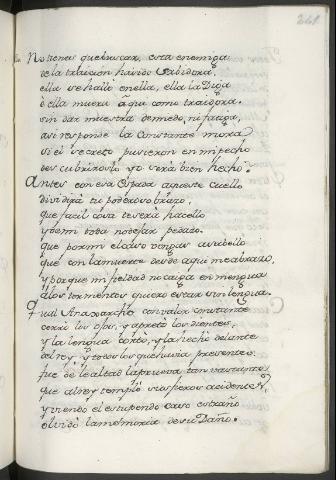 261
No tienes que buscar, esta enemiga
de la traicion ha sido sabidora,
ella se halló en ella, ella la Diga
ò ella muera aqui como traidora.
sin dar muestra de miedo, ni fatiga,
asi responde la constante mora
si el secreto pusieron en mi pecho
descubriroslo yo será bien hecho?
Antes con esa espada aqueste cuello
dividirá tu poderoso brazo,
que facil cosa te será hacello
y de mi toda no dejar pedazo.
que por mi el caso vengas a sabello
que con la muerte desde aqui me abrazo,
y porque mi fieldad no caiga en mengua
a los tormentos quiero estar sin lengua.
Qual Anaxarcho con valor constante
cerró los ojos, y apretó los dientes,
y la lengua cortó, y la hechó delante
del rey, y todos los que havia presentes.
fue de lealtad la prueva tan vastante
que al rey templó sus fieros accidentes,
y viendo el estupendo caso estraño
olvidó la memoria de su Daño.